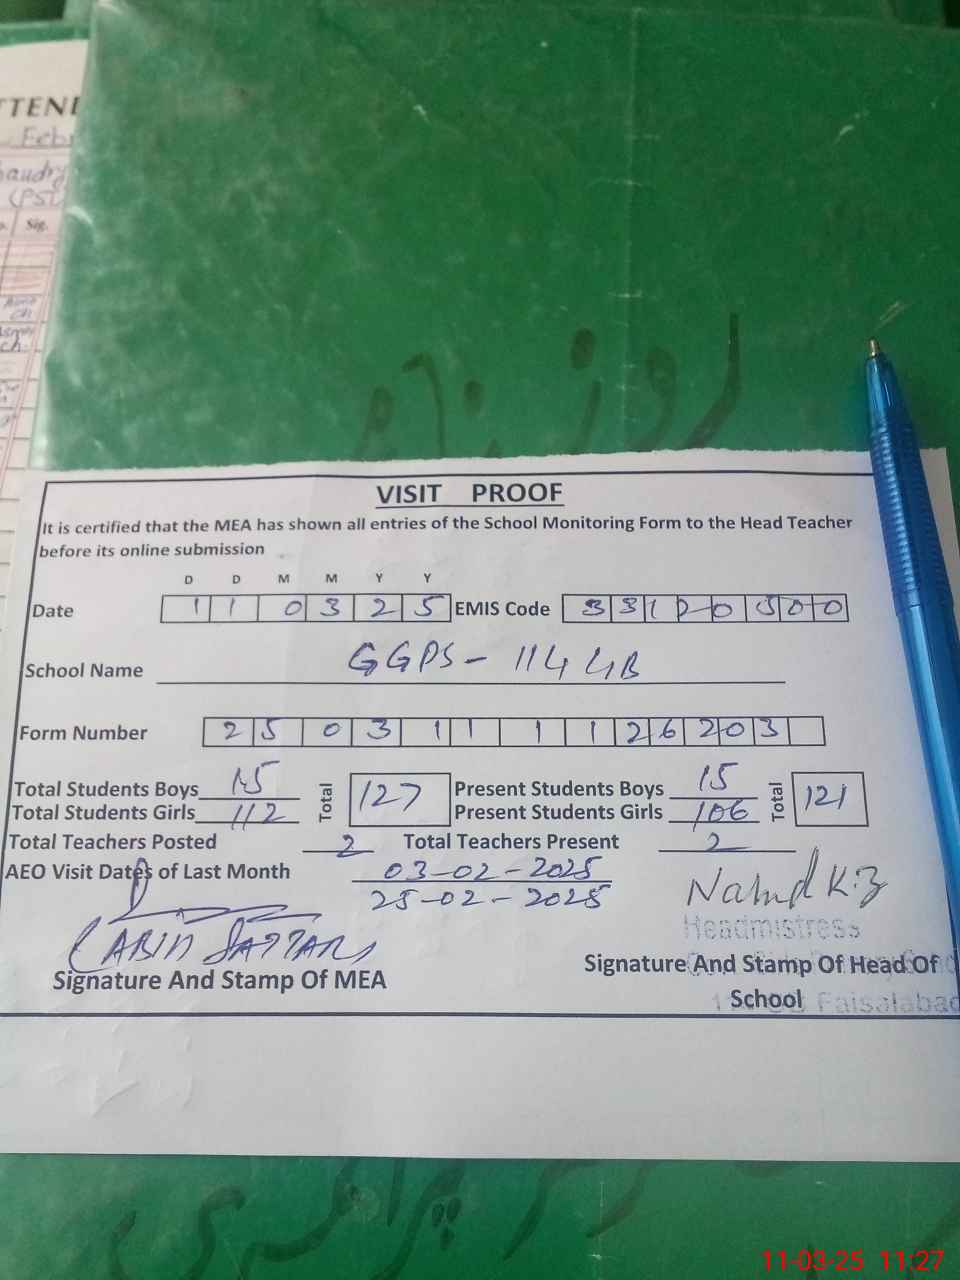 TTEND
Feb
(PST
Sig.
روز نامہ
VISIT PROOF
It is certified that the MEA has shown all entries of the School Monitoring Form to the Head Teacher
before its online submission
D D M M Y Y
Date 1 1 0 3 2 5 EMIS Code 3 3 1 2 0 3 0 0
School Name GGPS - 114 GB
Form Number 2 5 0 3 1 1 1 1 2 6 2 0 3
Total Students Boys 15 Total 127 Present Students Boys 15 Total 121
Total Students Girls 112 Present Students Girls 106
Total Teachers Posted 2 Total Teachers Present 2
AEO Visit Dates of Last Month 03-02-2025
25-02-2025
Headmistress
Signature And Stamp Of MEA Signature And Stamp Of Head Of
School
Faisalabad
11-03-25 11:27